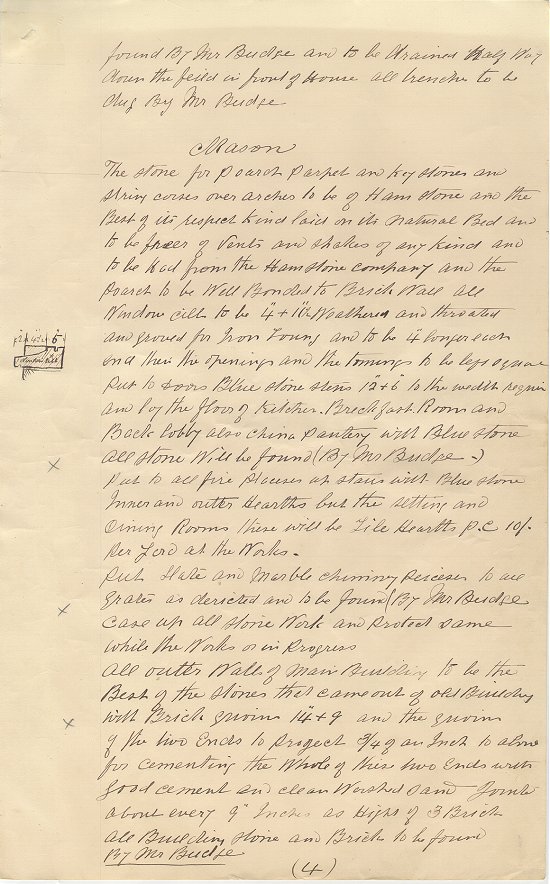 found By Mr Budge and to be drained Half Way
down the feild in front of House all trenches to be
dug By Mr Budge
Mason
The stone for Poarch Parpet and Key stones and
string corses over arches to be of Ham stone and the
Best of its respect kind laid on its natural Bed and
to be freer of Vents and shakes of any kind and
to be Had from the Hamstone company and the
Poarch to be Well Bonded to Brick Wall all
Window cills to be 4"+10" Weathered and throated
and groved for Iron Toung and to be 4" longer each
end then the openings and the to be left square
Put to Doors Blue stone steps 12"+6" to the width requir
and lay the floor of Kitchen. Breckfast Room and
Back Lobby also China Pantery with Blue stone
all stone Will be found (By Mr Budge)
Put to all fire Places up stairs with Blue stone
Inner and outer Hearths but the setting and
Dining Rooms these will be Tile Hearths P.C 10/-
Per Yerd at the Works.
Put Slate and Marble chimney Peiceses to all
grates as dericted and to be found (By Mr Budge
Case up all stone Work and Protect same
while the Works is in Progress
All outter Walls of Main Building to be the
Best of the stones that came out of old Building
with Brick quoins 14"+9 and the quoins
of the two Ends to Project 3/4 of an Inch to alow
for cementing the Whole of these two Ends with
good cement and clean Washed sand Jointed
about every 9" Inches as Hight of 3 Brick
all Building stone and Bricks to be found
By Mr Budge
(4)